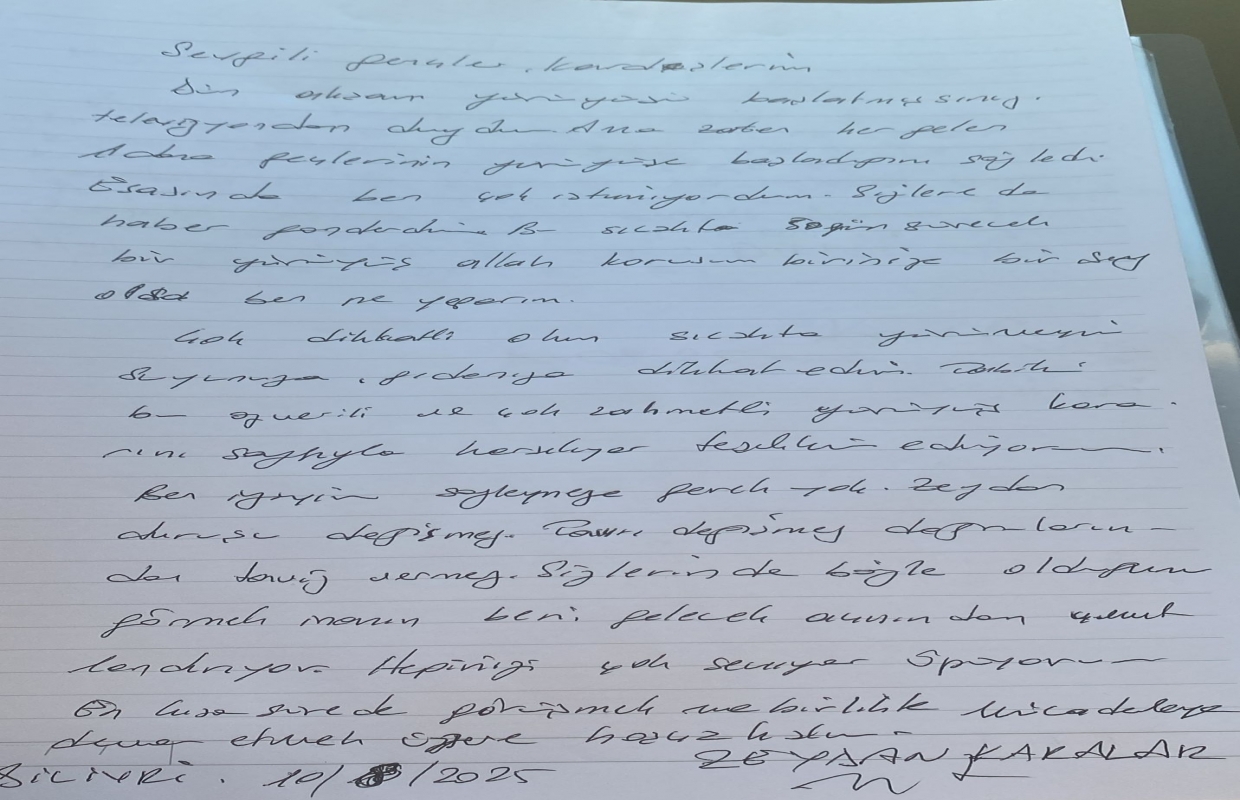 Sevgili gençler, kardeşlerim
Dün akşam yürüyüşü başlatmışsınız.
televizyondan duydum. Ana haber her gelen
Adana gençlerinin yürüyüşe başladığını söyledi.
Esasında ben çok istemiyordum. Sizlere de
haber gönderdim. Bu sıcakta 8 gün sürecek
bir yürüyüş allah korusun birinize bir şey
olsa ben ne yaparım.
Çok dikkatli olun sıcakta yürümeyin
Suyunuza, gıdanıza dikkat edin. Tabiki
bu özverili ve çok zahmetli yürüyüş kara-
rını saygıyla karşılıyor teşekkür ediyorum.
Ben iyiyim söylemeye gerek yok. Zeydan
duruşu değişmez. Tavrı değişmez doğruların-
dan taviz vermez. Sizlerinde böyle olduğunu
görmek inanın beni gelecek açısından umut
lendiriyor. Hepinizi çok seviyor öpüyorum
En kısa sürede görüşmek ve birlikte mücadeleye
devam etmek üzere hoşçakalın.
ZEYDAN KARALAR
SİLİVRİ. 10/8/2025